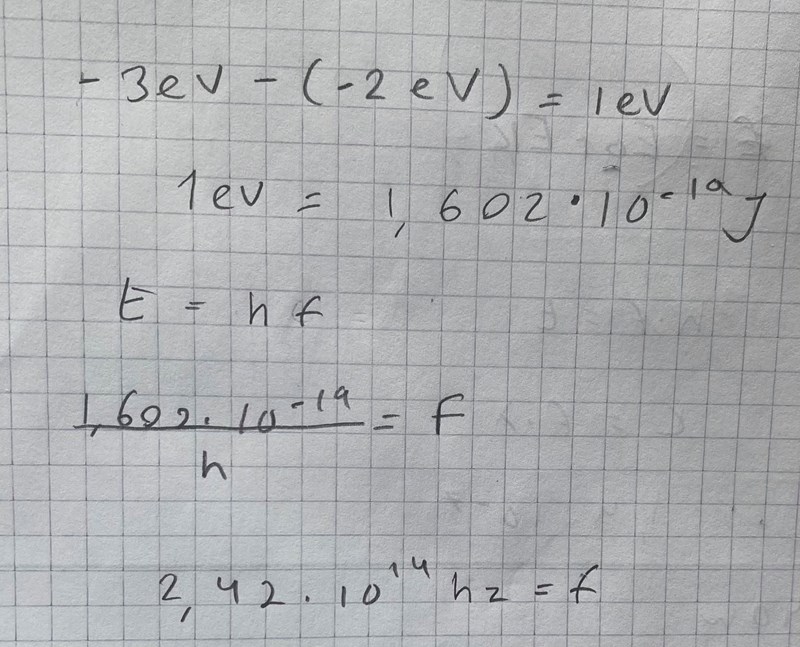 - 3eV - (-2 eV) = 1eV
1ev = 1,602 · 10^-19 J
E = h f
1,602 · 10^-19 / h = f
2,42 · 10^14 hz = f